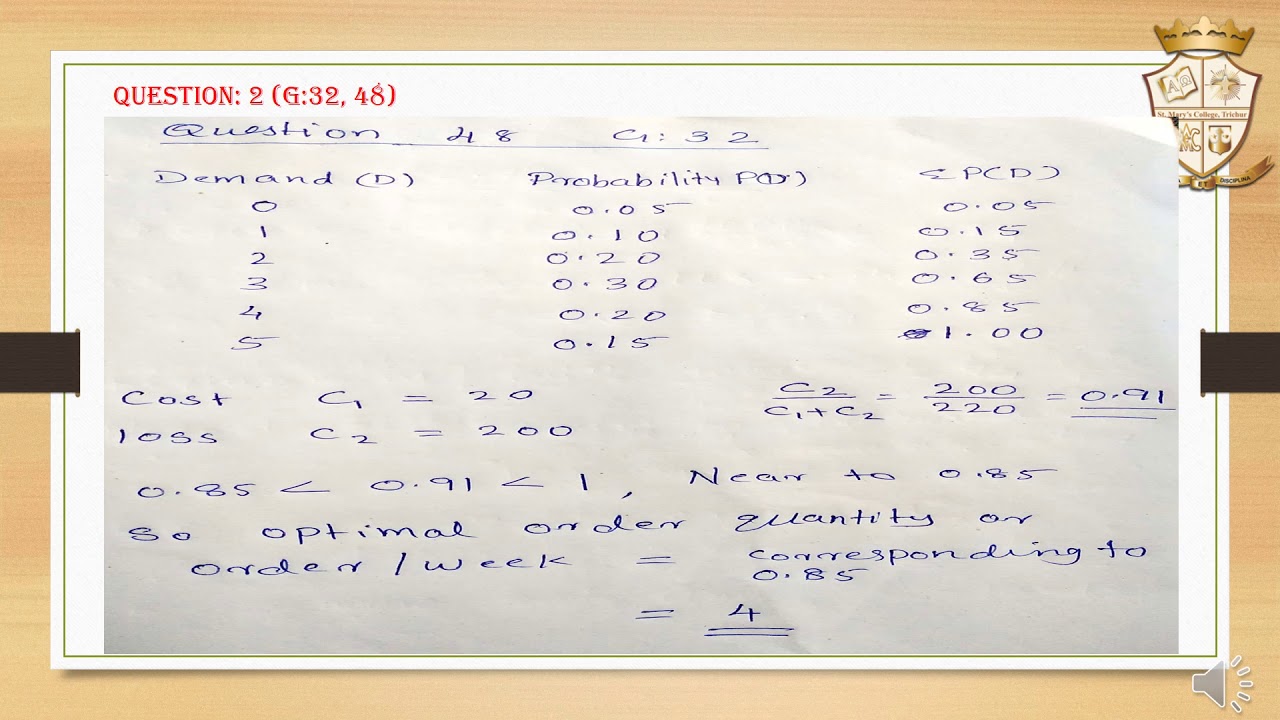 QUESTION: 2 (G:32, 48)
Question 48 G:32
Demand (D) Probability P(D) Σ P(D)
0 0.05 0.05
1 0.10 0.15
2 0.20 0.35
3 0.30 0.65
4 0.20 0.85
5 0.15 1.00
Cost C1 = 20 C2/C1+C2 = 200/220 = 0.91
loss C2 = 200
0.85 < 0.91 < 1, Near to 0.85
So optimal order quantity or
order/week = corresponding to
0.85
= 4
St. Mary's College, Trichur
ET DISCIPLINA